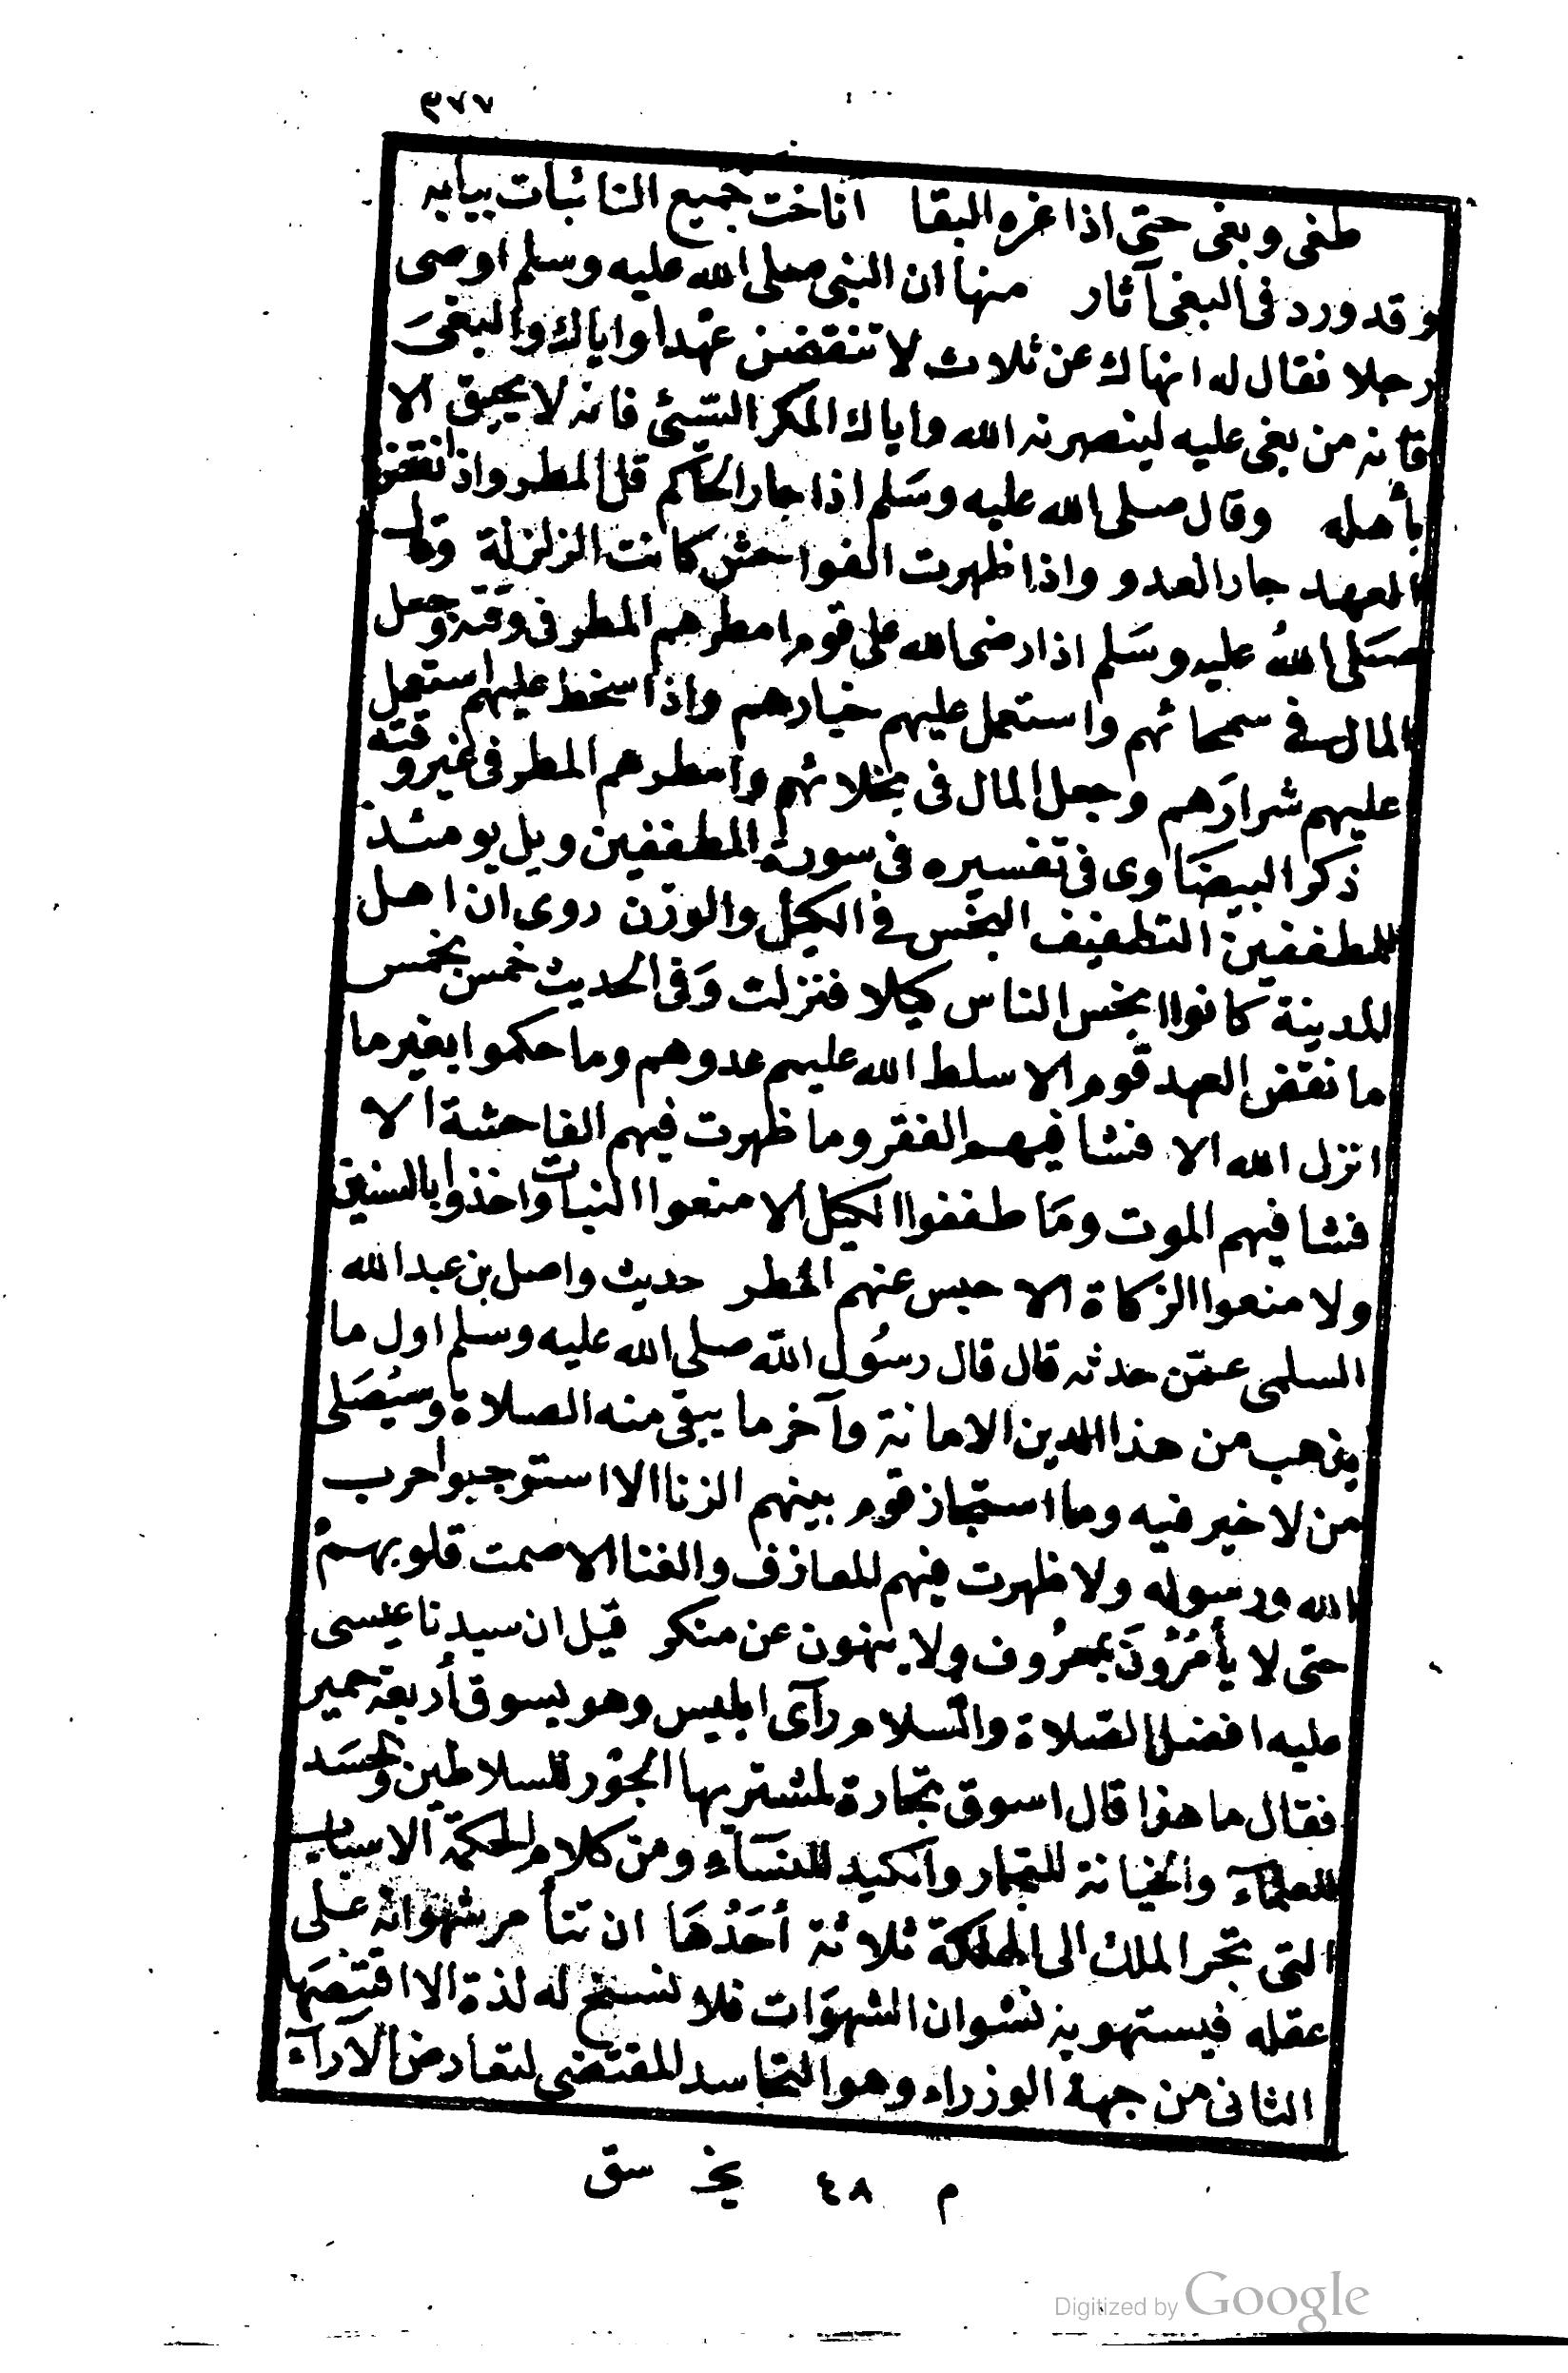 ٣٧٧
طغى وبغى حتى اذا غره البقا اناخت جميع النائبات ببابه
وقد ورد فى البغى آثار منها ان النبى صلى الله عليه وسلم اوصى
رجلا فقال له انهاك عن ثلاث لا تنقضن عهدا واياك والبغىَ
فانه من بغى عليه لينصرنه الله واياك المكر السّيئ فانه لا يحيق الا
بأهله وقال صلى الله عليه وسَلم اذا جار الحاكم قل المطر واذا نقض
العهد جار العدو واذا ظهرت الفواحش كانت الزلزلة وقال
صَلى اللهُ عليه وسَلم اذا رضى الله على قوم امطرهم المطر فى وقته وجعل
المال فى سمحائهم واستعمل عليهم خيارهم واذا سخط عليهم استعمل
عليهم شرارَهم وجعل المال فى بخلائهم وامطرهم المطر فى غير وقته
ذكر البيضَاوى فى تفسيره فى سورة المطففين ويل يومئذ
للمطففين التطفيف البخس فى الكيل والوزن روى ان اهل
المدينة كانوا ابخس الناس كيلا فنزلت وَفى الحديث خمس بخمس
ما نقض العهد قوم الا سلط الله عليهم عدوهم وما حكموا بغير ما
انزل الله الا فشا فيهم الفقر وما ظهرت فيهم الفاحشة الا
فشا فيهم الموت ومَا طففوا الكيل الا منعوا النبات واخذوا بالسنين
ولا منعوا الزكاة الا حبس عنهم المطر حديث واصل بن عبد الله
السلمى عمّن حدثه قال قال رسُول الله صلى الله عليه وسلم اول ما
يذهب من هذا الدين الامانة وآخر ما يبقى منه الصلاة وسيُصَلى
من لا خير فيه وما استجاز قوم بينهم الزنا الا استوجبوا حرب
الله ورسوله ولا ظهرت فيهم المعازف والغنا الا صمت قلوبهمْ
حتى لا يأمُرُونَ بمعرُوف ولا ينهون عن منكر قيل ان سيدنا عيسى
عليه افضل الصّلاة والسّلام رآى ابليس وهو يسوق أربعة حمير
فقال ما هذا قال اسوق تجارة لمشتريها الجوْر للسلاطين والحسَد
للعلمآء والخيانة للتجار والكيد للنسَآء ومن كلام الحكمة الاسباب
التى تجر الملك الى الهلكة ثلاثة أحَدُهَا ان تتأمر شهواته على
عقله فيستهويه نشوان الشهوَات فلا تسنح له لذة الا اقتنصَها
الثانى من جهة الوزراء وهو التحاسد المقتضى لتعارض الآرآء
م ٤٨ يخ سق
Digitized by Google